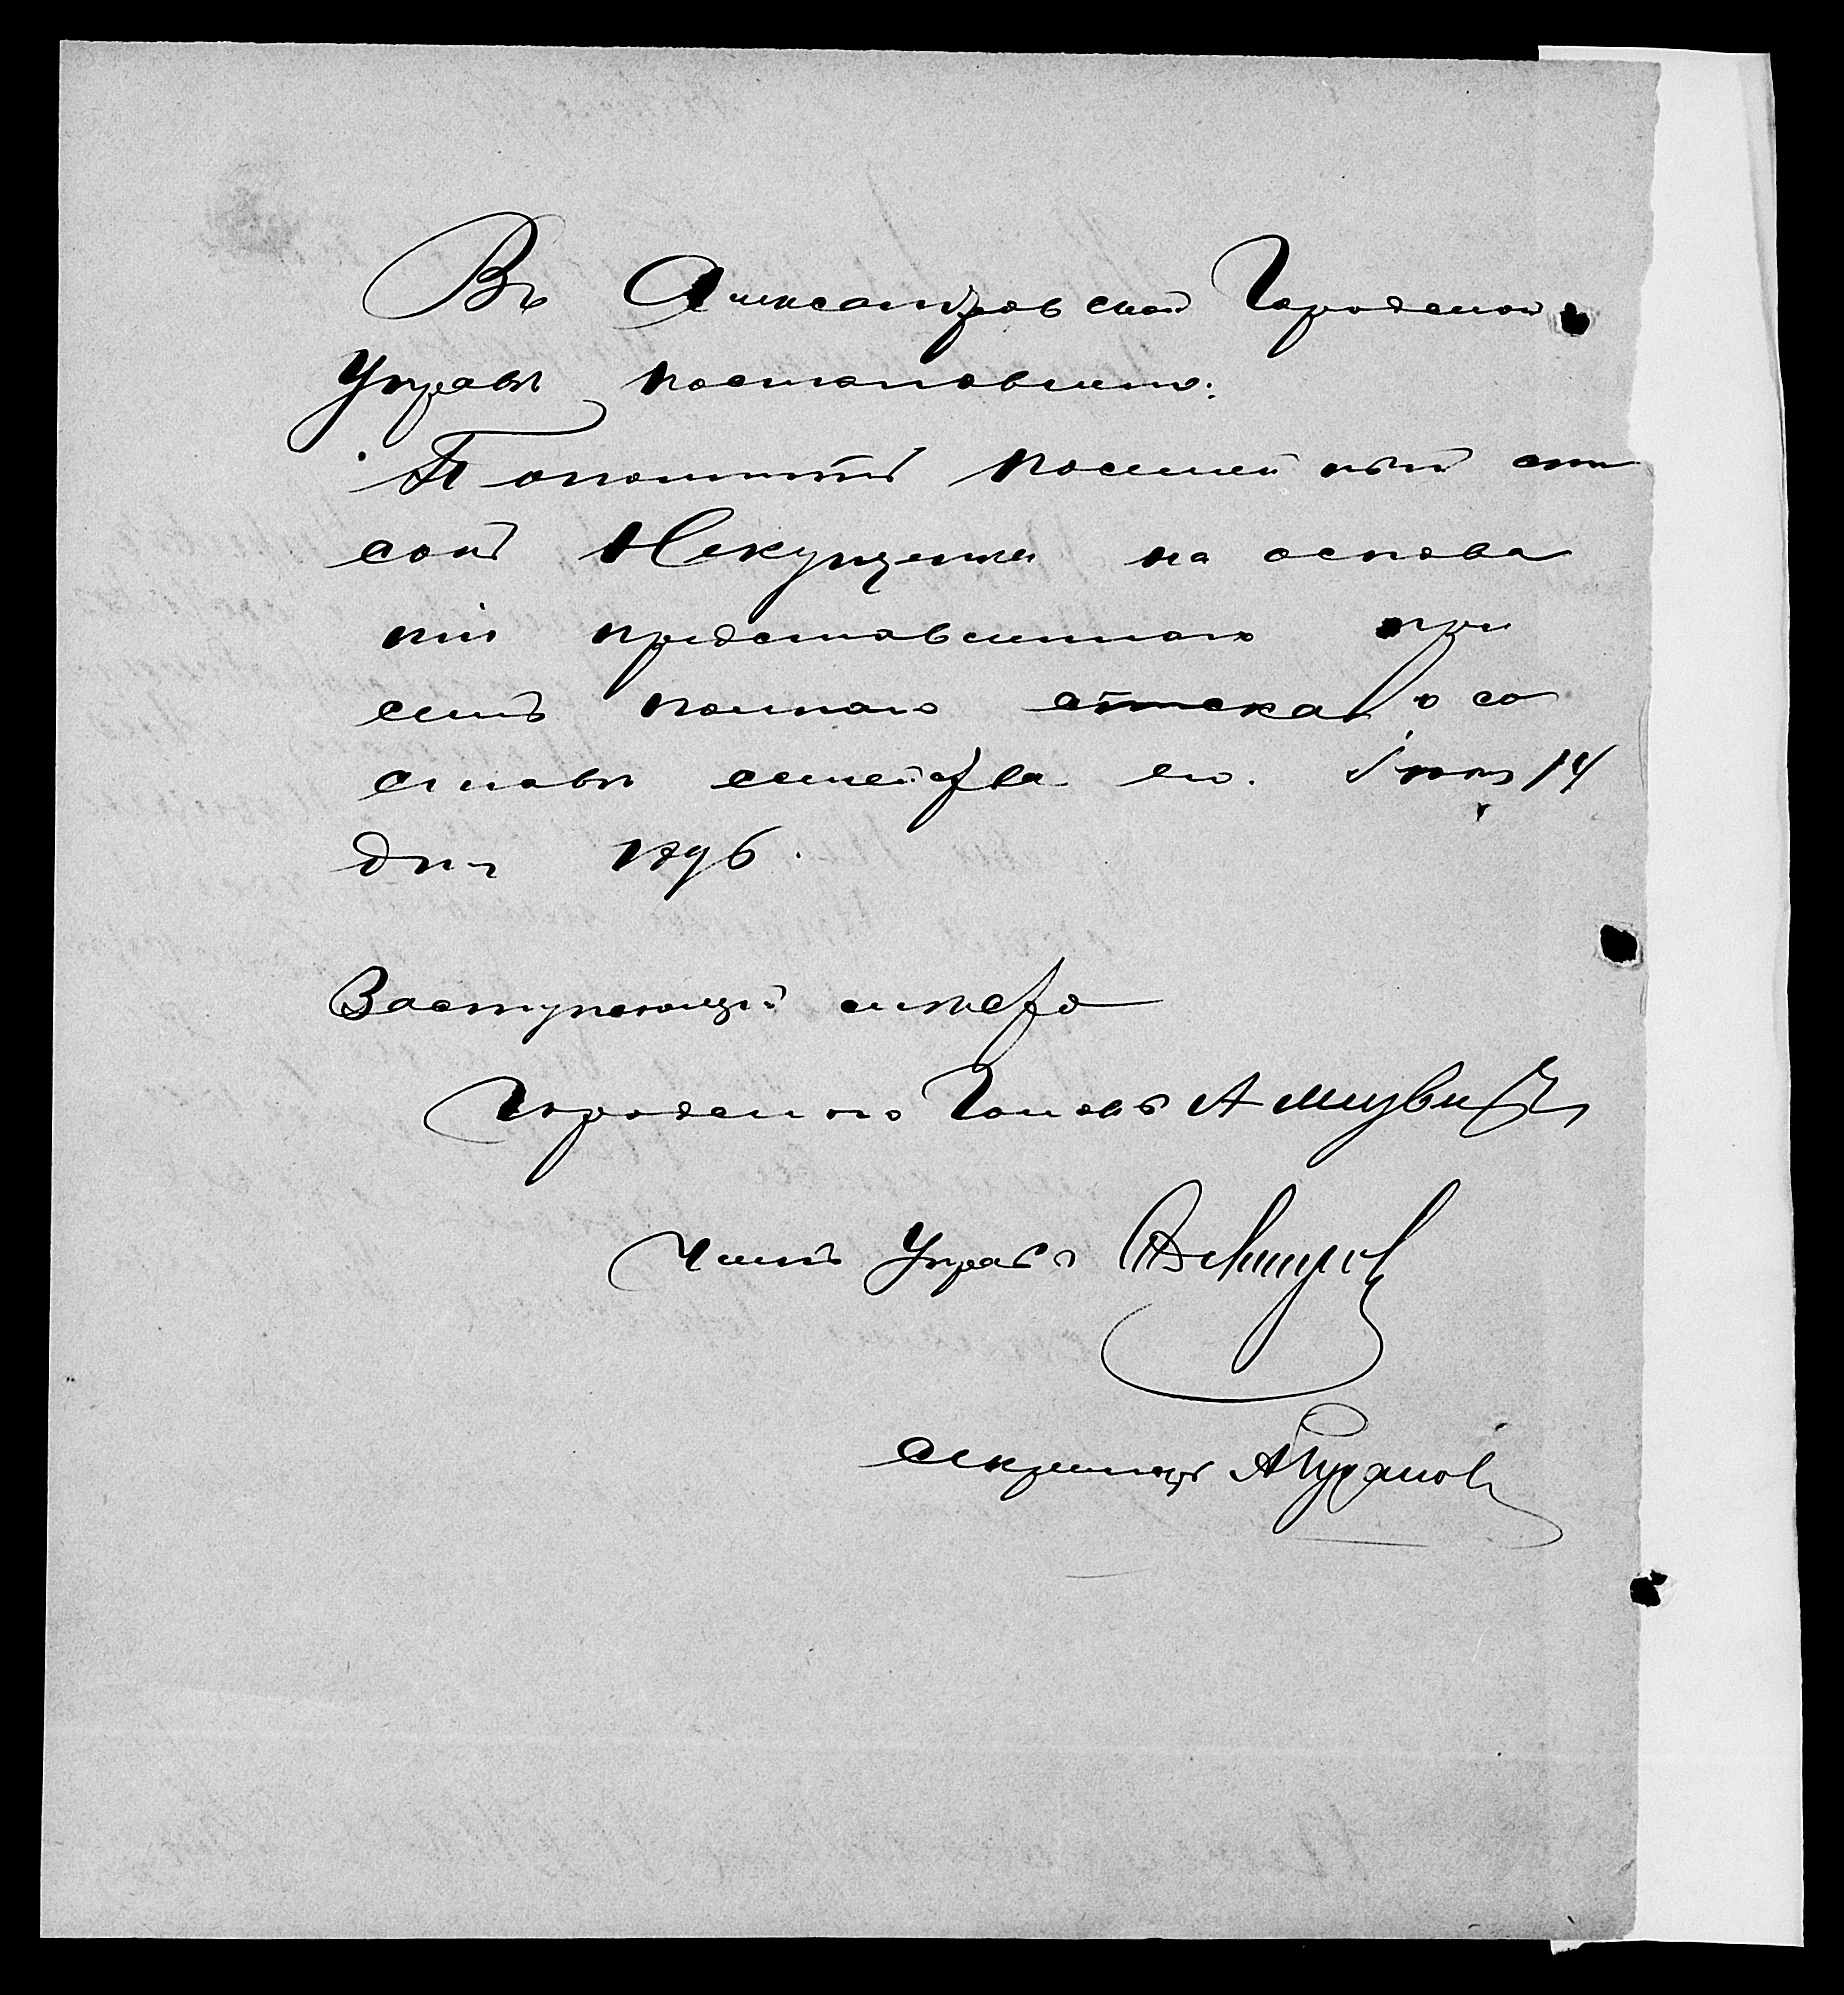 Въ Александровской Городской
Управѣ постановлено:
Пополнить посемейный спи
сокъ на основа
ніи представленнаго при
семъ полнаго списка о со
ставѣ семейства его. Iюня 14
дня 1896.
Заступающій мѣсто
Городского Головы
Членъ Управы
Секретарь